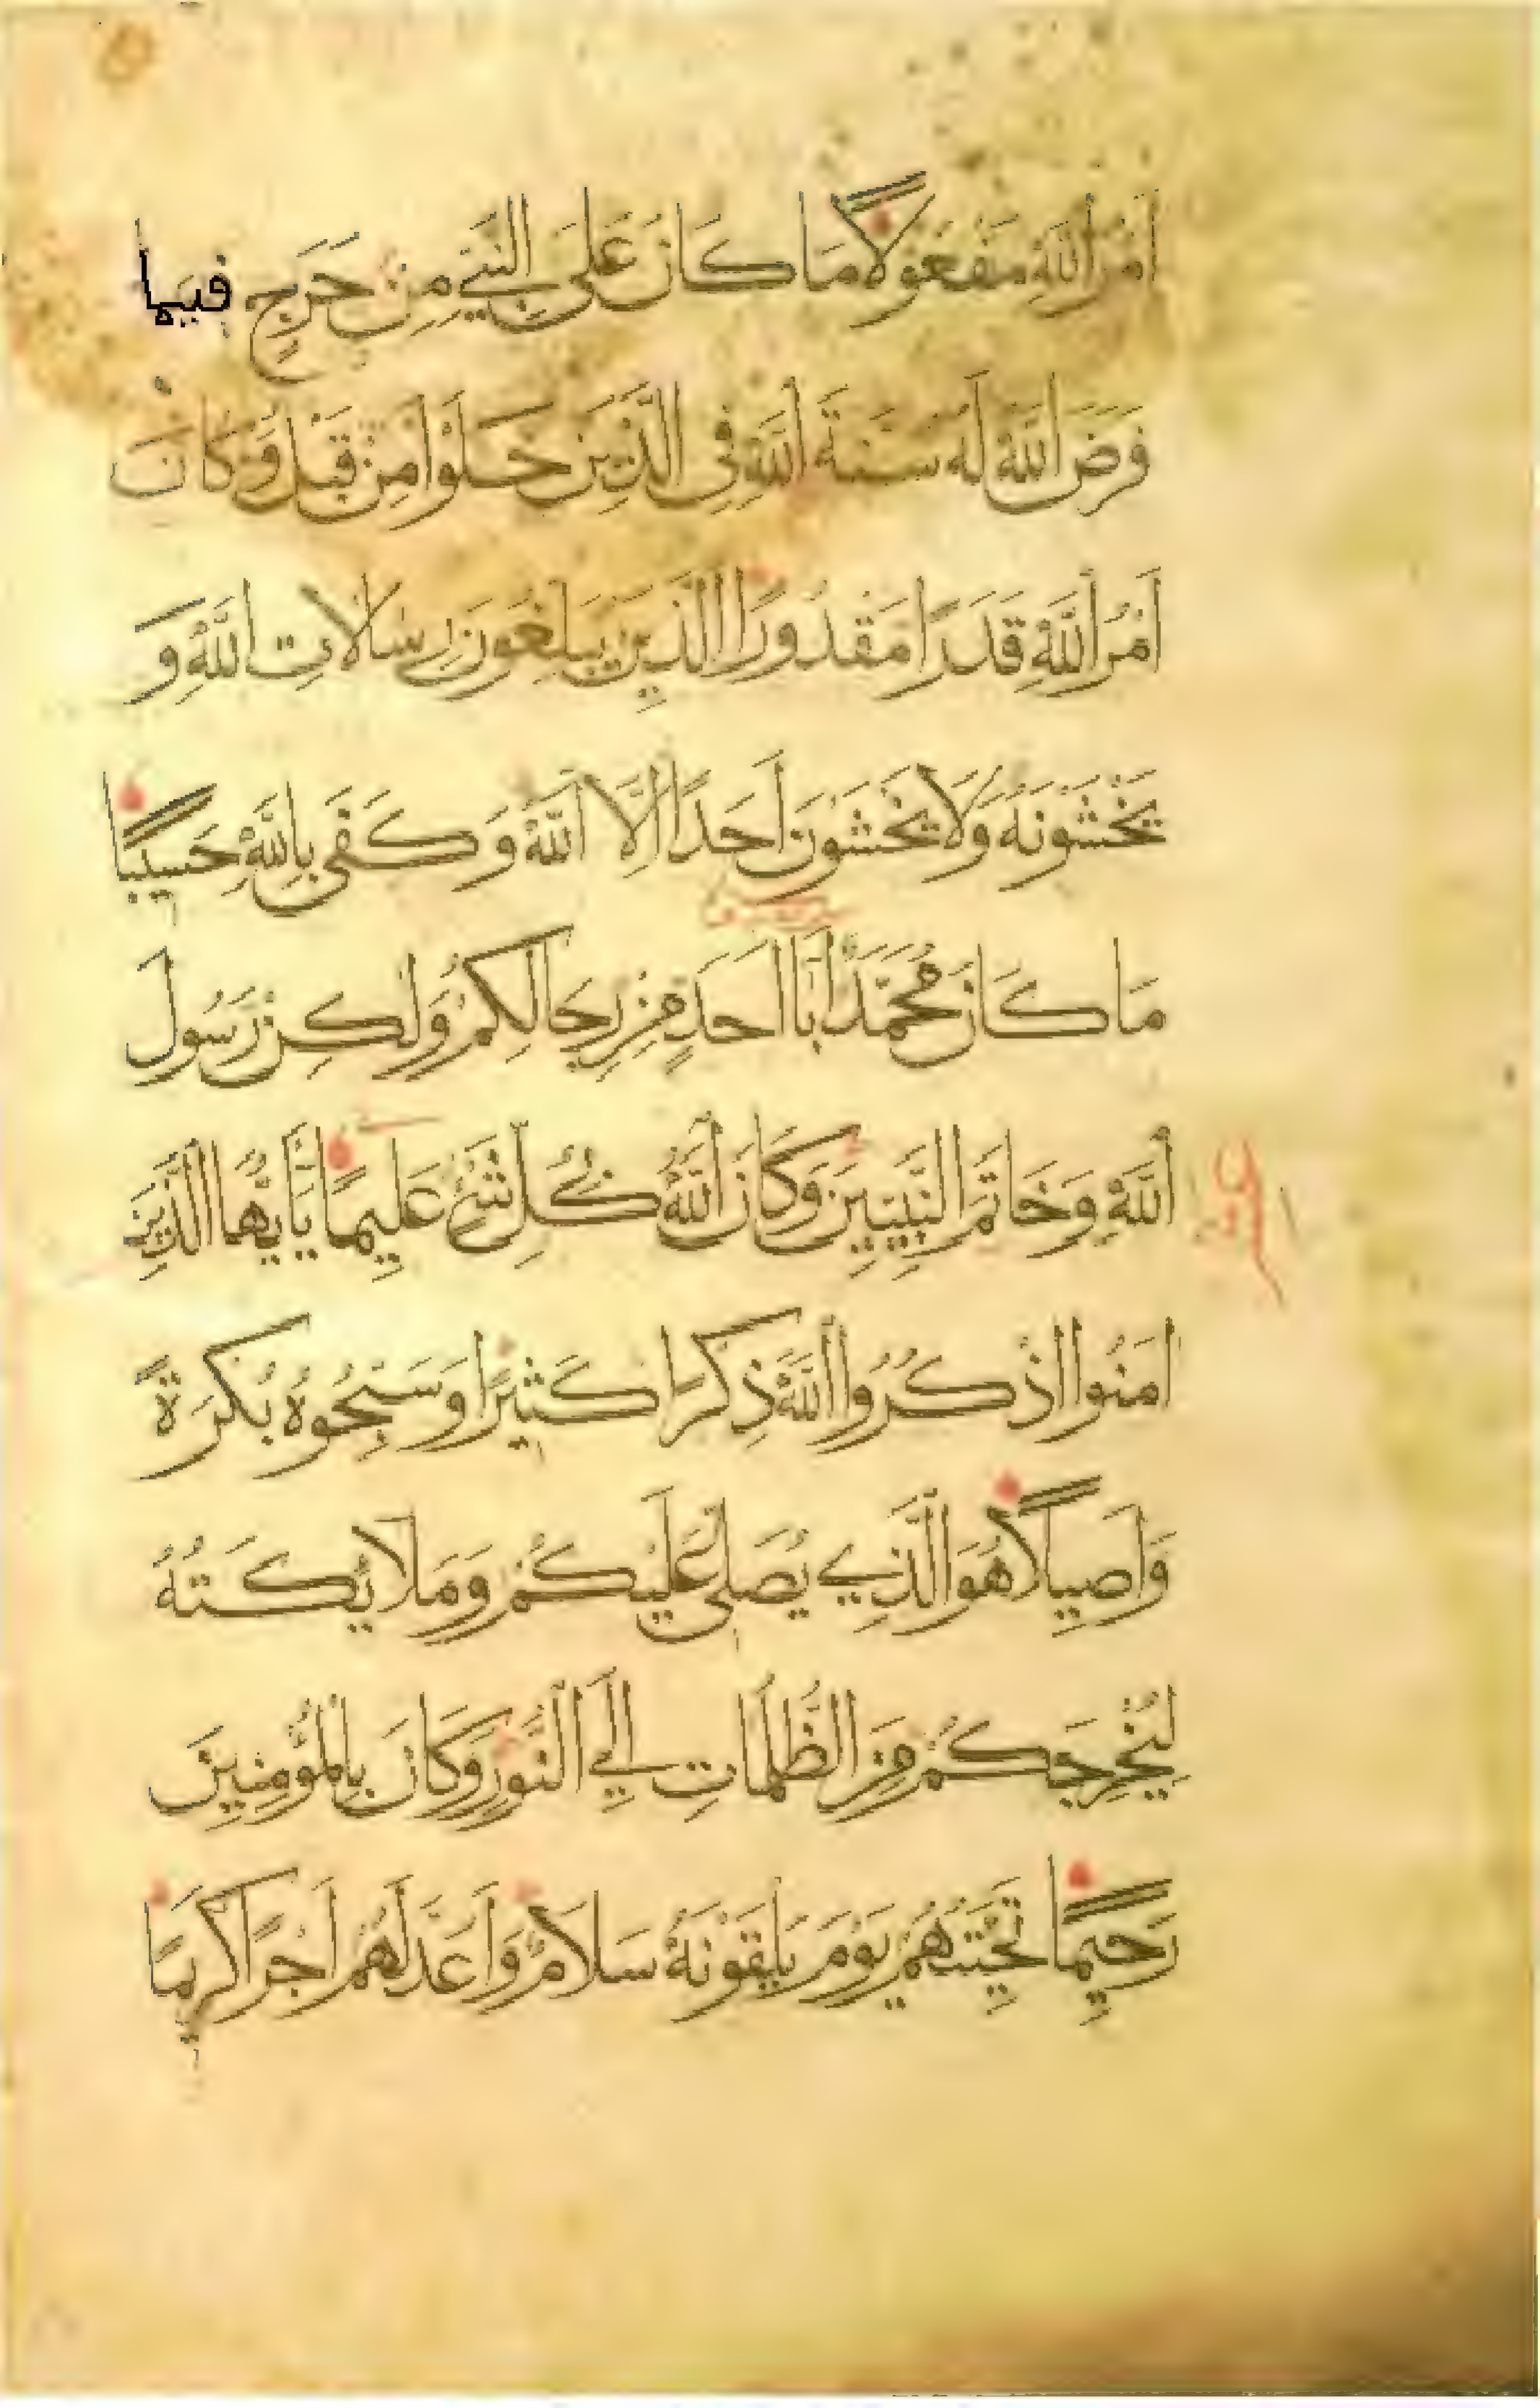 اَمْرُ اللَّهِ مَفْعُوْلًا مَا كَانَ عَلَى النَّبِيِّ مِنْ حَرَجٍ فيما
فَرَضَ اللَّهُ لَهُ سُنَّةَ اَللَّهِ فِي الَّذِيْنَ خَلَوْا مِنْ قَبْلُ وَكَانَ
اَمْرُ اللَّهِ قَدَرًا مَقْدُورًا الَّذِيْنَ يُبَلِّغُوْنَ رِسَالَاتِ اللَّهِ وَ
يَخْشَوْنَهُ وَلَا يَخْشَوْنَ اَحَدًا اِلَّا اَللَّهَ وَكَفَى بِاللَّهِ حَسِيْبًا
مَا كَانَ مُحَمَّدٌ اَبَا اَحَدٍ مِنْ رِجَالِكُمْ وَلَكِنْ رَسُولَ
اَللَّهِ وَخَاتَمَ النَّبِيِّيْنَ وَكَانَ اَللَّهُ بِكُلِّ شَيْءٍ عَلِيمًا يَا اَيُّهَا الَّذِيْنَ
اَمَنُوا اذْكُرُوا اَللَّهَ ذِكْرًا كَثِيْرًا وَسَبِّحُوهُ بُكْرَةً
وَاَصِيلًا هُوَ الَّذِي يُصَلِّي عَلَيْكُمْ وَمَلَائِكَتُهُ
لِيُخْرِجَكُمْ مِنَ الظُّلُمَاتِ اِلَى النُّوْرِ وَكَانَ بِالْمُؤْمِنِيْنَ
رَحِيْمًا تَحِيَّتُهُمْ يَوْمَ يَلْقَوْنَهُ سَلَامٌ وَاَعَدَّ لَهُمْ اَجْرًا كَرِيمًا